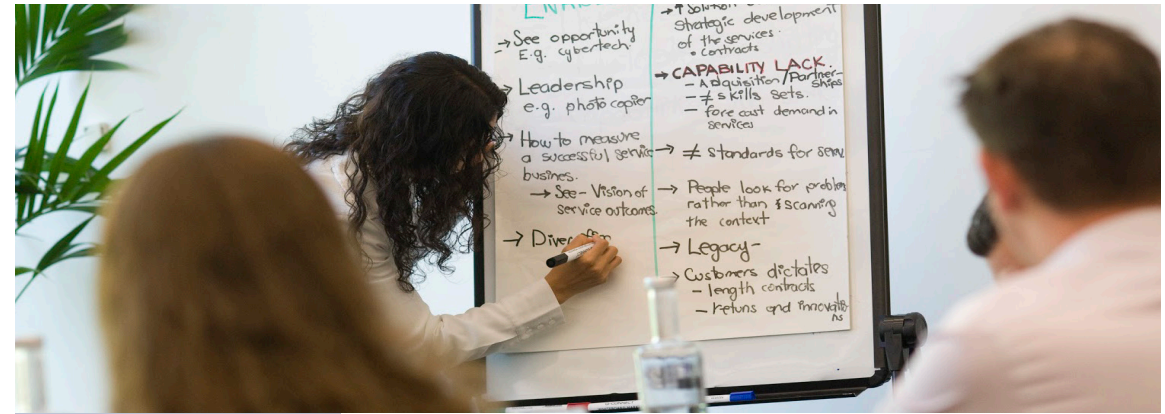 → See opportunity
E.g. cybertech.
→ Leadership
e.g. photocopier
→ How to measure
a successful service
busines.
→ See - Vision of
service outcomes.
→
strategic development
of the services.
• contracts
→ CAPABILITY LACK.
- Adquisition/Partner-
ships
- ≠ skills sets.
- fore cast demand in
services
→ ≠ standards for
→ People look for
rather than scanning
the context
→ Legacy -
→ Customers dictates
- length contracts
- retuns and innovatio
ns